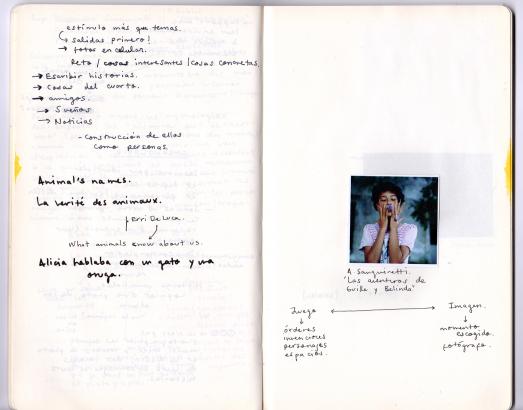 estímulo más que temas.
→ salidas primero!
→ fotos en celular.
Reto / cosas interesantes / cosas concretas.
→ Escribir historias.
→ cosas del cuarto.
→ amigos.
→ Sueños
→ Noticias
- Construcción de ellos
como personas.
Animal's names.
La verité des animaux.
Erri De Luca.
What animals know about us.
Alicia hablaba con un gato y una
oruga.
A Sanguinetti.
"Las aventuras de
Guille y Belinda"
Juego ↔ Imagen.
↓
órdenes
invenciones
personajes
espacios.
↓
momento
escogido.
fotógrafo.